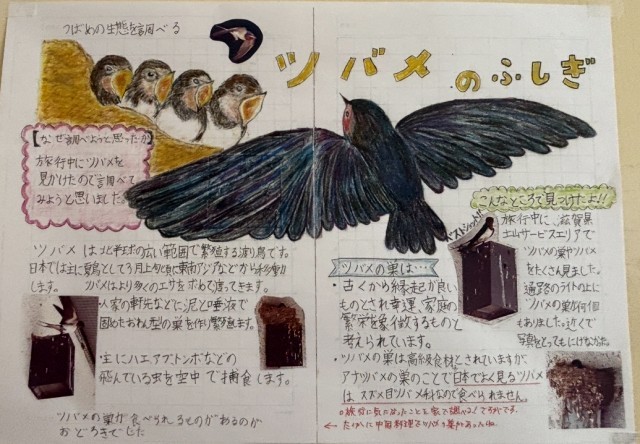 つばめの生態を調べる
ツバメのふしぎ
【なぜ調べようと思ったか】
旅行中にツバメを
見かけたので調べて
みようと思いました。
ツバメは北半球の広い範囲で繁殖する渡り鳥です。
日本では主に夏鳥として3月上旬頃に東南アジアなどから移動
します。 ツバメはより多くのエサを求めて渡ってきます。
人家の軒先などに泥と唾液で
固めたおわん型の巣を作り繁殖します。
主にハエ、アブ、トンボなどの
飛んでいる虫を空中で捕食します。
ツバメの巣が食べられるものがあるのが
おどろきでした
こんなところで見つけたよ!!
ベストショット!!
旅行中に、滋賀県
土山サービスエリアで
ツバメの巣やツバメ
をたくさん見ました。
通路のライトの上に
ツバメの巣が何個
もありました。近くで
写真をとってもにげなかった。
ツバメの巣は…
・古くから縁起が良い
ものとされ幸運、家庭の
繁栄を象徴するものと
考えられています。
・ツバメの巣は高級食材とされていますが、
アナツバメの巣のことで日本でよく見るツバメ
は、スズメ目ツバメ科なので食べられません。
旅行に気になったことを家で調べることができた。
← たしかに中国料理でツバメの巣があったね。